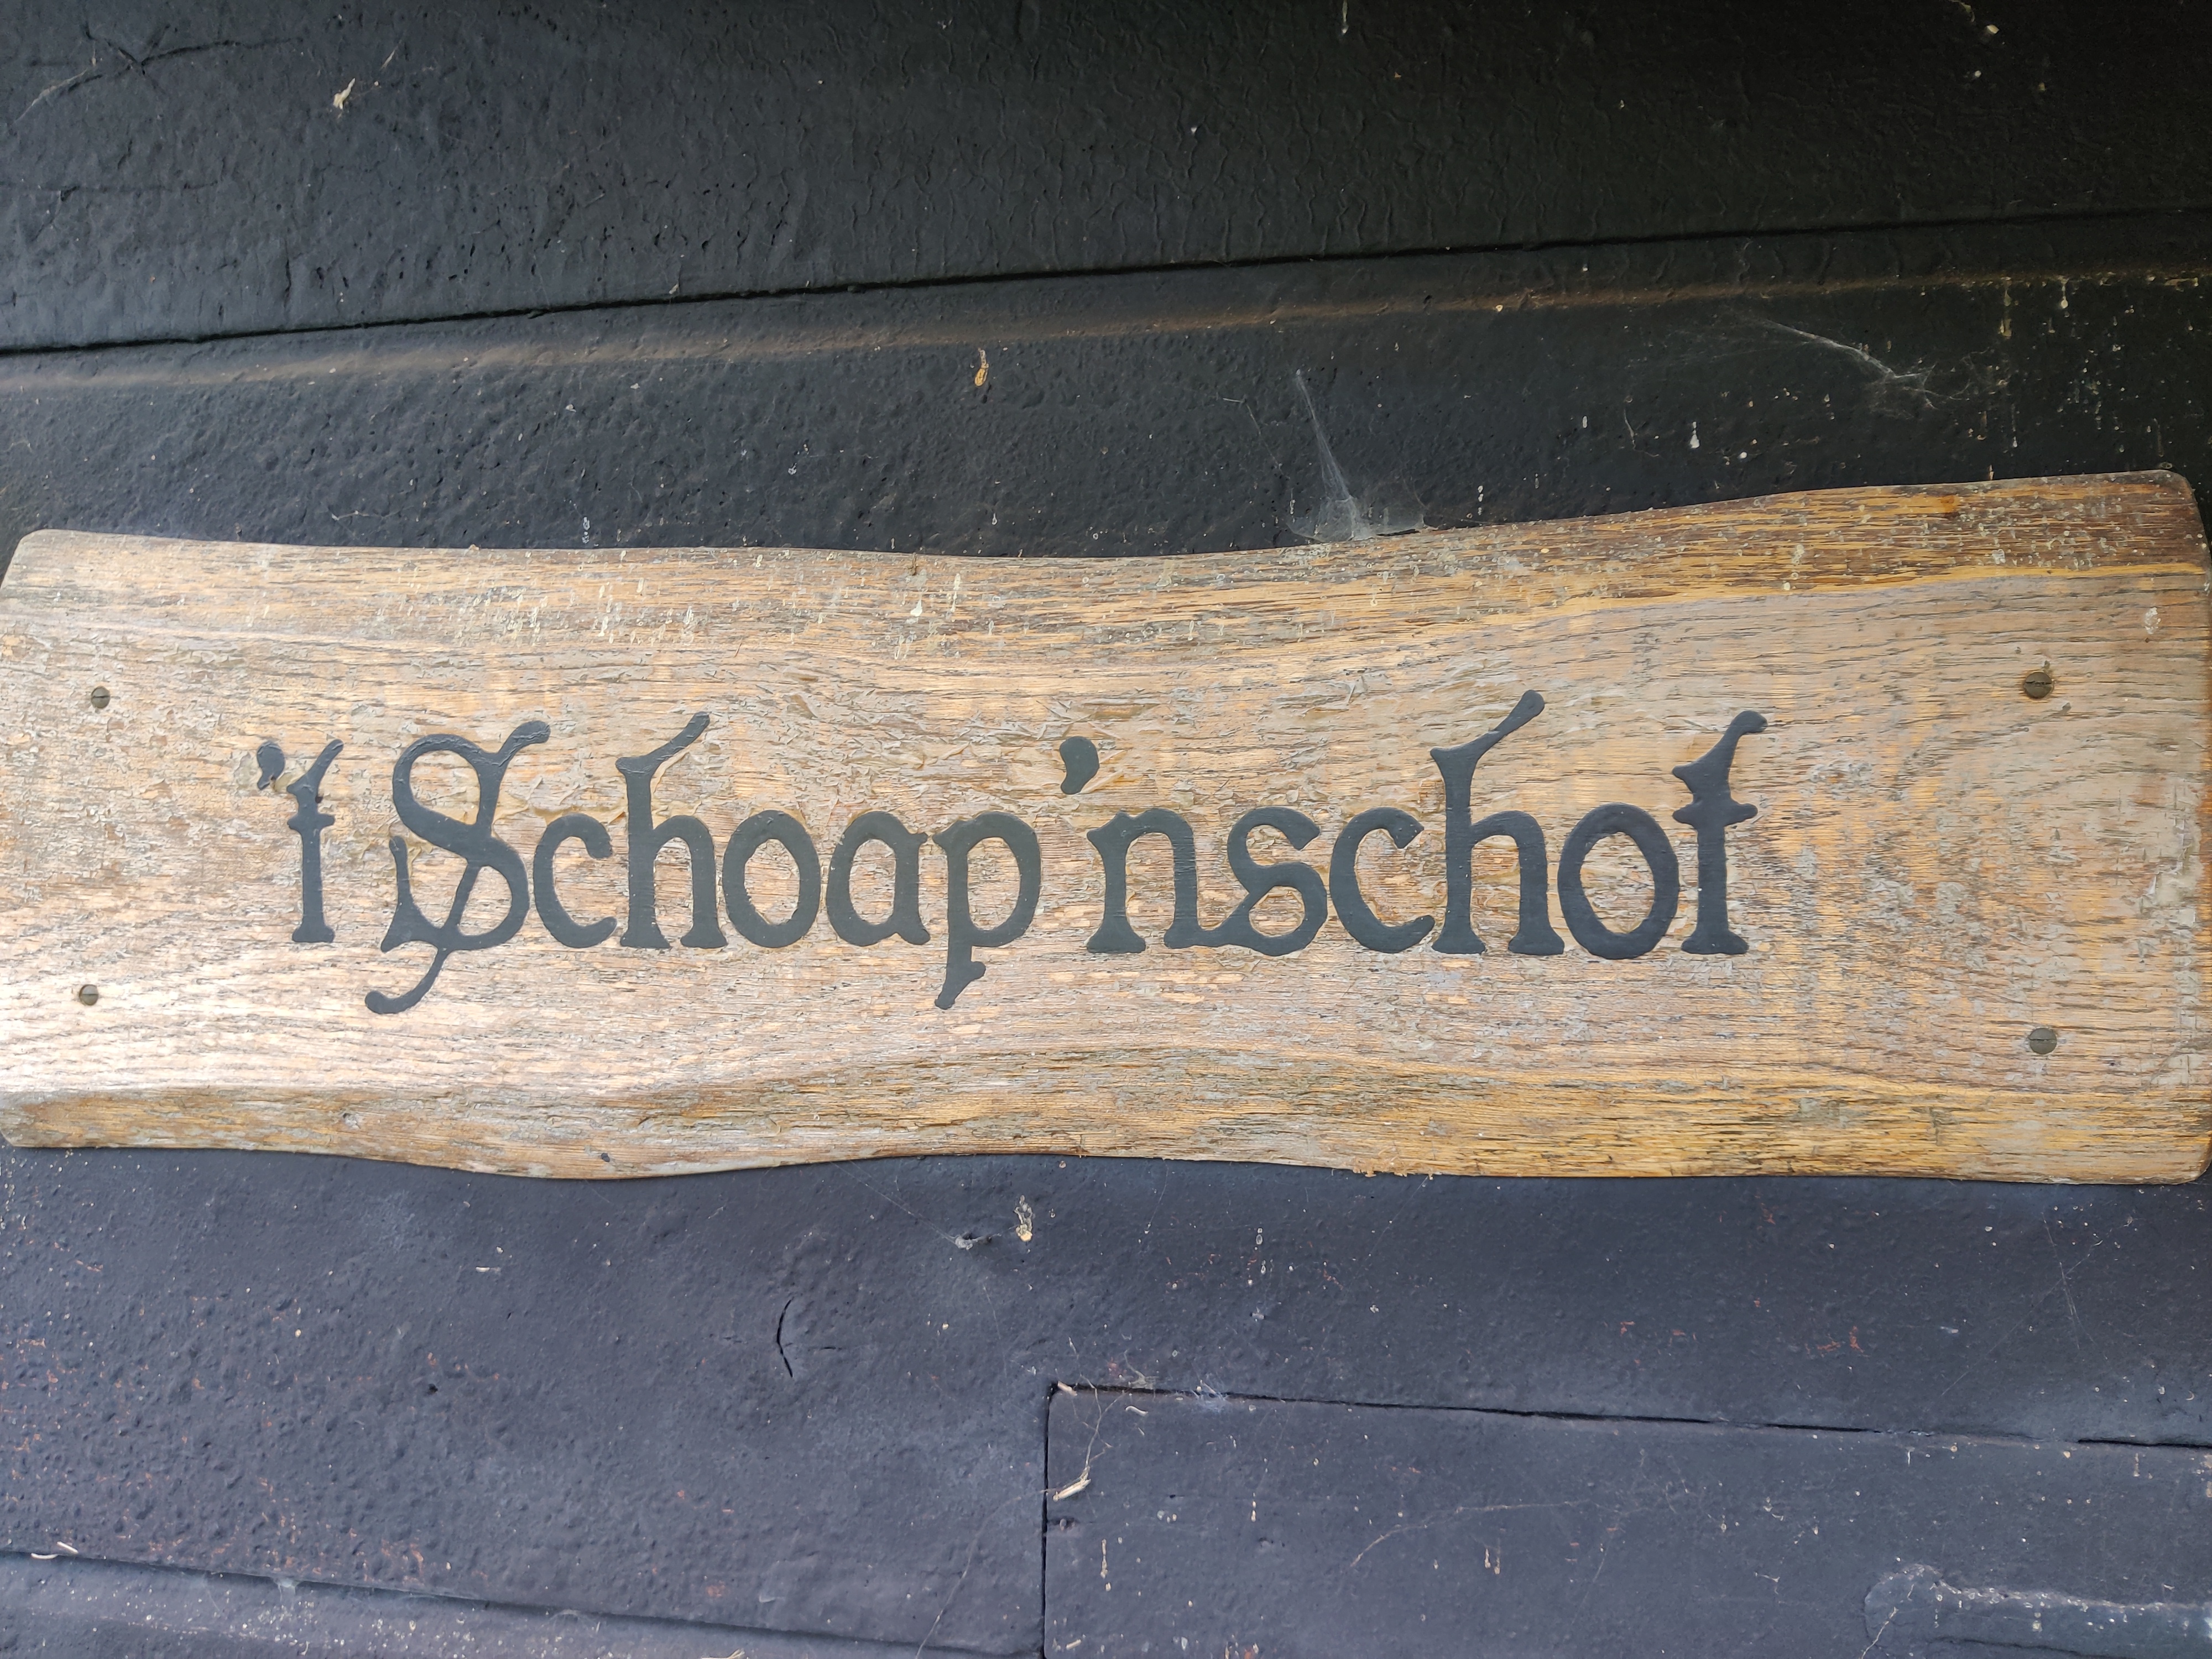 't Schoap'nschot